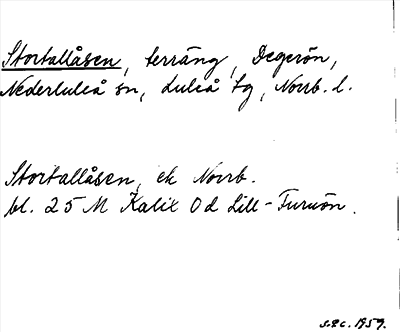 Stortallåsen, terräng, Degerön,
Nederluleå sn, Luleå tg, Norrb. l.
Stortallåsen, ek Norrb.
bl. 25 M Kalix Od Lill-Furuön.
1957.